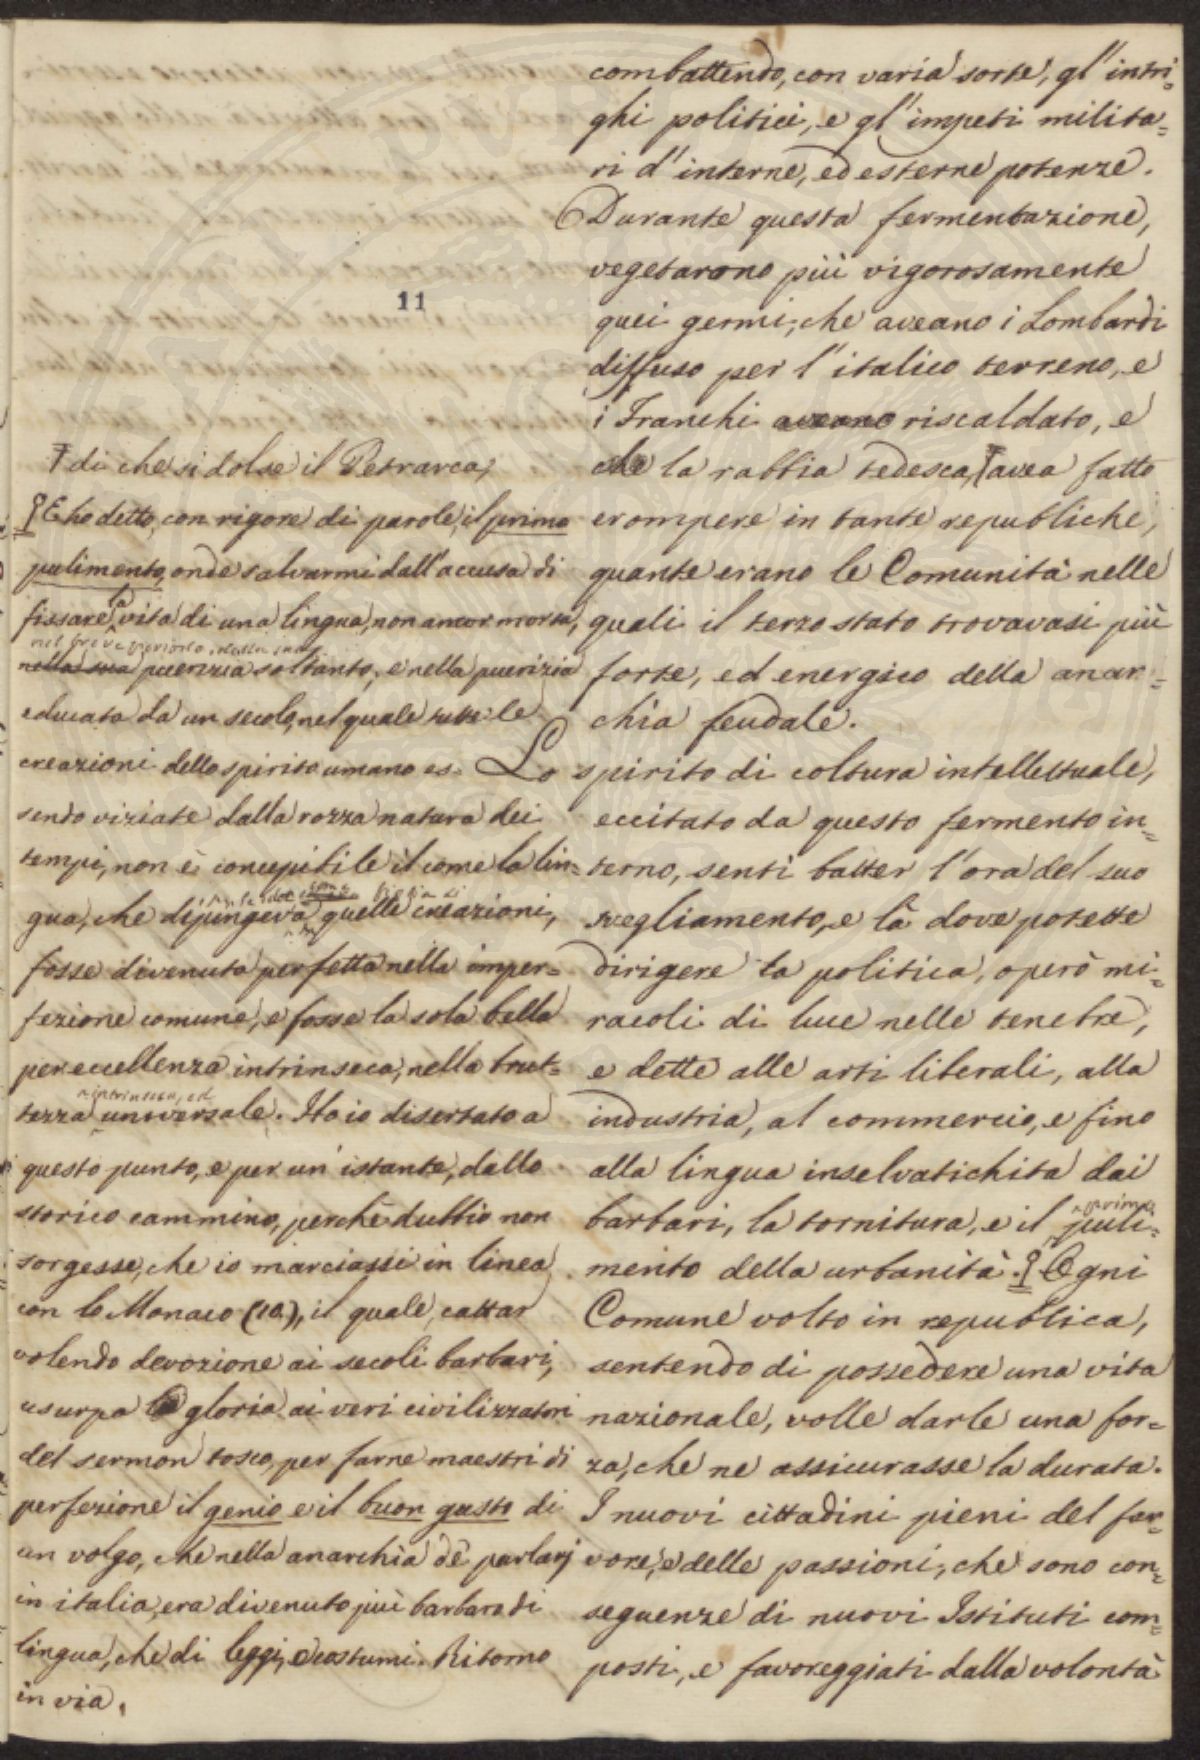 combattendo, con varia sorte, gl'intri=
ghi politici, e gl'impeti milita=
ri d'interne, ed esterne potenze.
Durante questa fermentazione,
vegetarono più vigorosamente
quei germi, che aveano i Lombardi
diffuso per l'italico terreno, e
i Franchi aveano riscaldato, e
che la rabbia tedesca, † avea fatto
erompere in tante republiche,
quante erano le Comunità nelle
quali il terzo stato trovavasi più
forte, ed energico della anar=
chia feudale.
Lo spirito di coltura intellettuale,
eccitato da questo fermento in=
terno, sentì batter l'ora del suo
svegliamento, e là dove potette
dirigere la politica, operò mi=
racoli di luce nelle tenebre,
e dette alle arti liberali, alla
industria, al commercio, e fino
alla lingua inselvatichita dai
barbari, la tornitura, e il primo puli=
mento della urbanità. Ogni
Comune volto in republica,
sentendo di possedere una vita
nazionale, volle darle una for=
za, che ne assicurasse la durata.
I nuovi cittadini pieni del fer=
vore, e delle passioni, che sono con=
seguenze di nuovi Istituti com=
posti, e favoreggiati dalla volontà
11
† di che si dolse il Petrarca,
E ho detto, con rigore di parole, il primo
pulimento, onde salvarmi dall'accusa di
fissare la vita di una lingua, non ancor morta,
nel breve periodo, della sua
nella sua puerizia soltanto, e nella puerizia
educata da un secolo, nel quale tutte le
creazioni dello spirito umano es=
sendo viziate dalla rozza natura dei
tempi, non è concepibile il come la lin=
gua, che dipingeva quelle creazioni,
fosse divenuta perfetta nella imper=
fezione comune, e fosse la sola bella
per eccellenza intrinseca, nella brut=
intrinseca, ed
tezza universale. Ho io disertato a
questo punto, e per un' istante, dallo
storico cammino, perchè dubbio non
sorgesse, che io marciassi in linea
con lo Monaco (10.), il quale, cattar
volendo devozione ai secoli barbari,
usurpa la gloria ai veri civilizzatori
del sermon tosco, per farne maestri di
perfezione il genio e il buon gusto di
un volgo, che nella anarchia de' parlari
in italia, era divenuto più barbaro di
lingua, che di leggi, e costumi. Ritorno
in via.